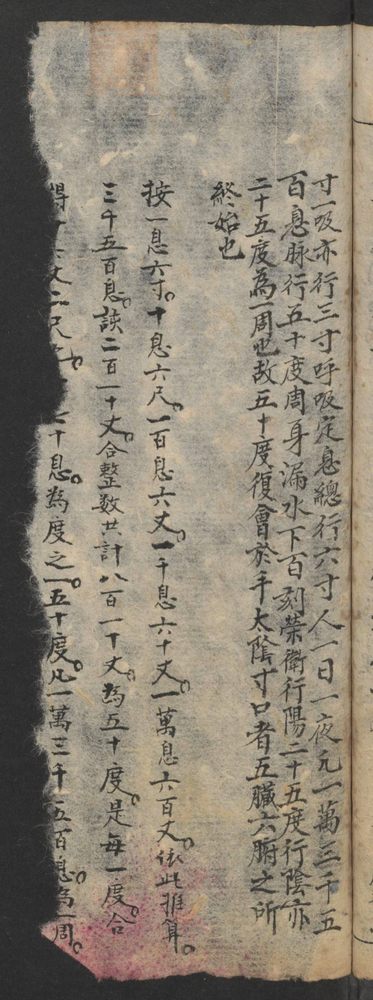 寸一吸亦行三寸呼吸定息總行六寸人一日一夜凡一萬三千五
百息脉行五十度周身漏水下百刻榮衛行陽二十五度行陰亦
二十五度為一周也故五十度復會於手太陰寸口者五臟六腑之所
終始也
按一息六寸。十息六尺。一百息六丈。一千息六十丈。一萬息六百丈。依此推算。
三千五百息。該二百一十丈。合整数共計八百一十丈。為五十度。是每一度。合
得十六丈二尺。十息。為度之一。五十度。凡一萬三千五百息。為一周。